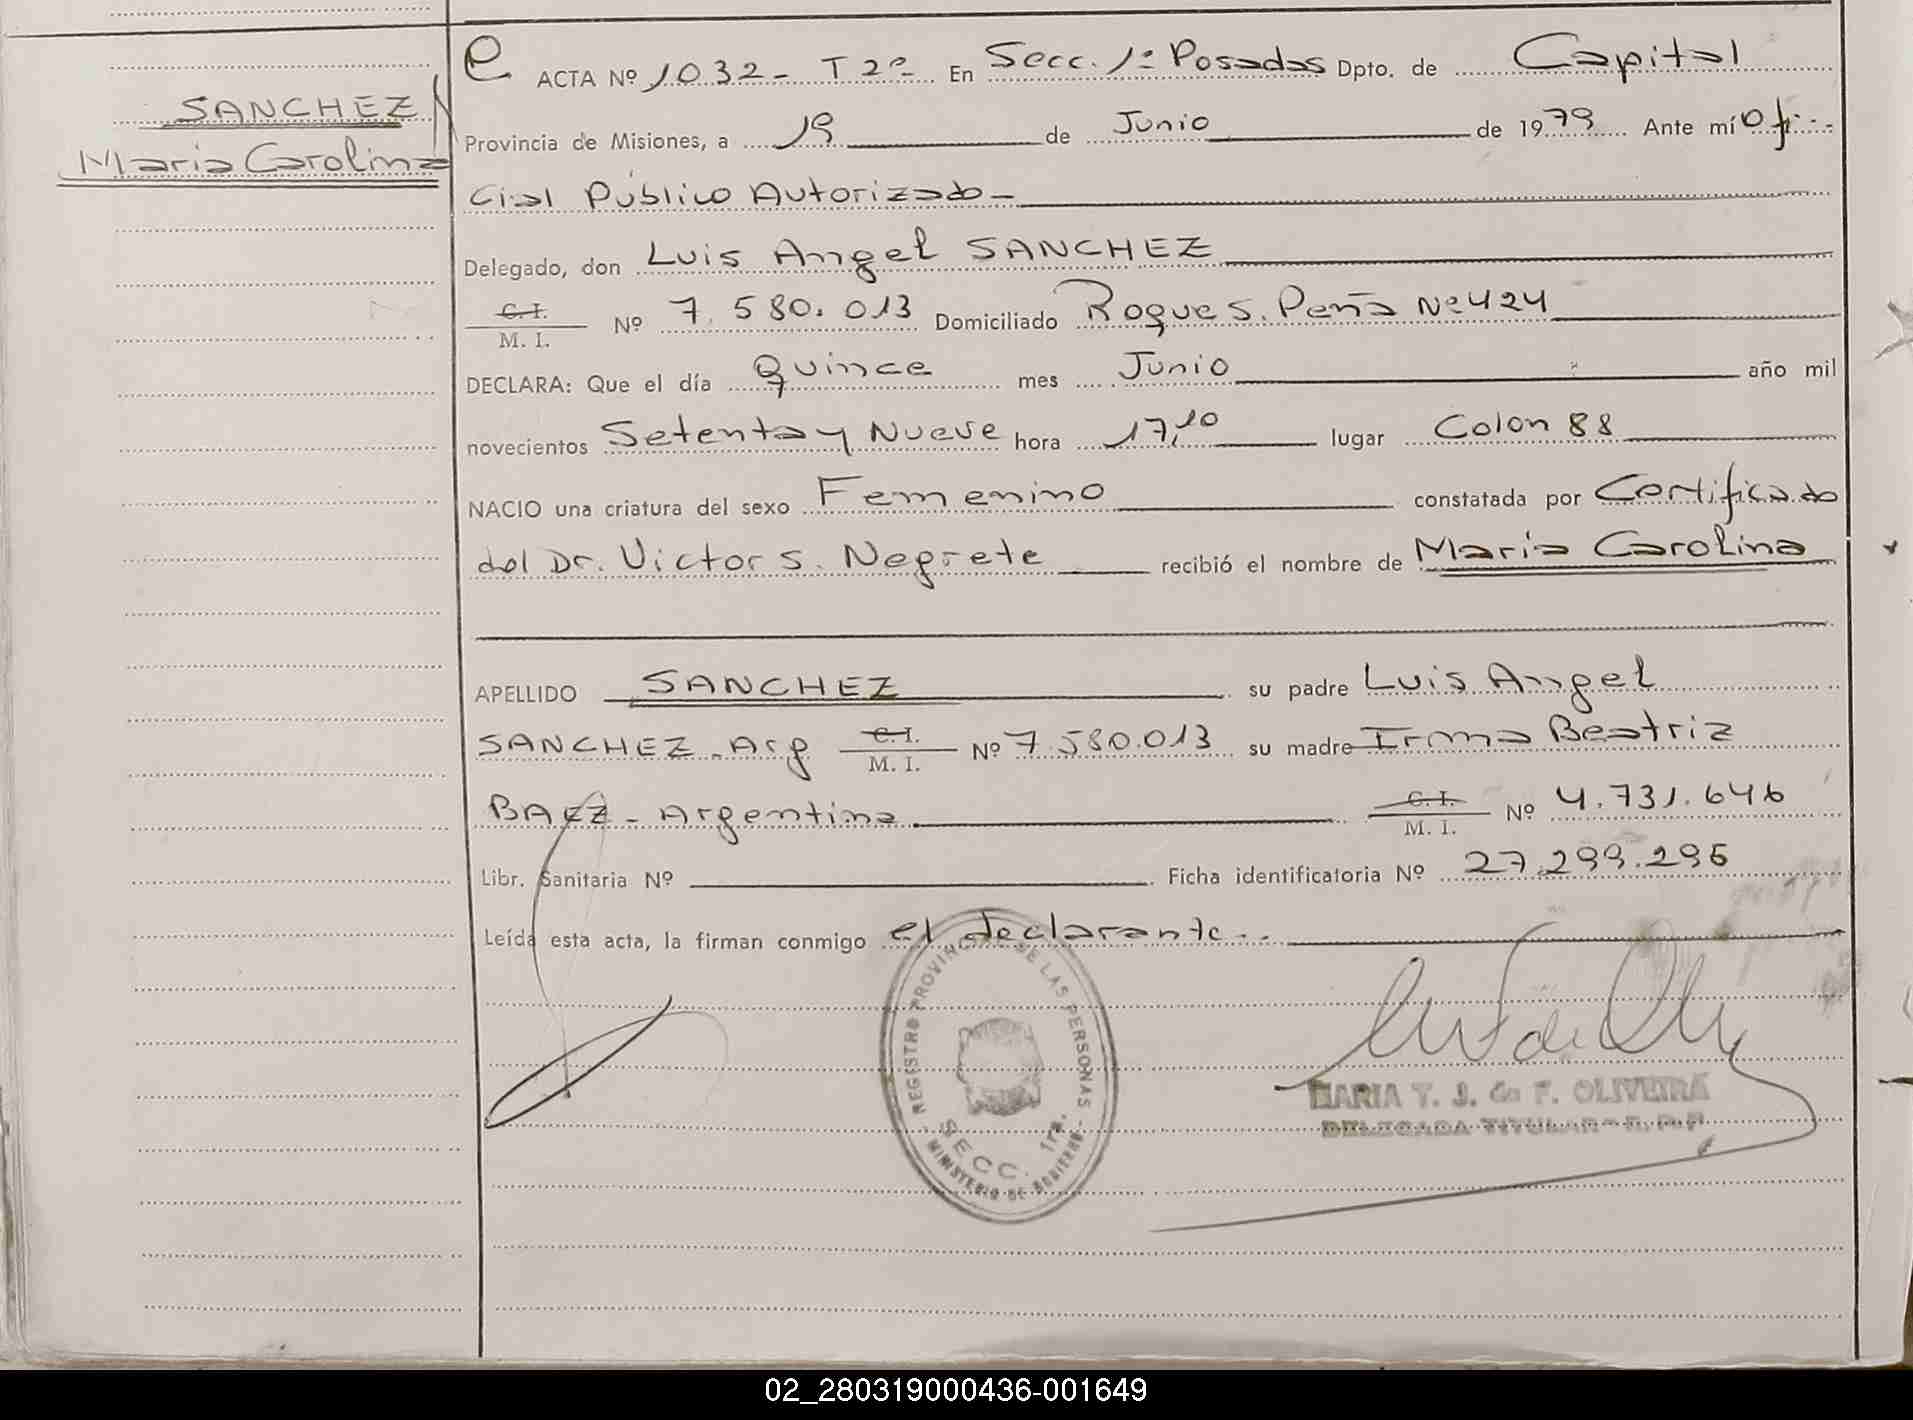 SANCHEZ
Maria Carolina
e ACTA Nº 1032- T 2º En Secc. 1ª Posadas Dpto. de Capital
Provincia de Misiones, a 19 de Junio de 1979 Ante mí Ofi-
cial Público Autorizado-
Delegado, don Luis Angel SANCHEZ
C.I. M. I. Nº 7.580.013 Domiciliado Roque S. Peña Nº 424
DECLARA: Que el día Quince mes Junio año mil
novecientos Setenta y Nueve hora 17,10 lugar Colon 88
NACIO una criatura del sexo Femenino constatada por Certificado
del Dr. Victor S. Negrete recibió el nombre de Maria Carolina
APELLIDO SANCHEZ su padre Luis Angel
SANCHEZ - Arg C.I. M. I. Nº 7.580.013 su madre Irma Beatriz
BAEZ - Argentina C.I. M. I. Nº 4.731.646
Libr. Sanitaria Nº Ficha identificatoria Nº 27.299.296
Leída esta acta, la firman conmigo el declarante..
REGISTRO PROVINCIAL DE LAS PERSONAS
SECC. 1ra.
MINISTERIO DE GOBIERNO
MARIA T. J. de F. OLIVEIRA
DELEGADA TITULAR - R. P. P.
02_280319000436-001649